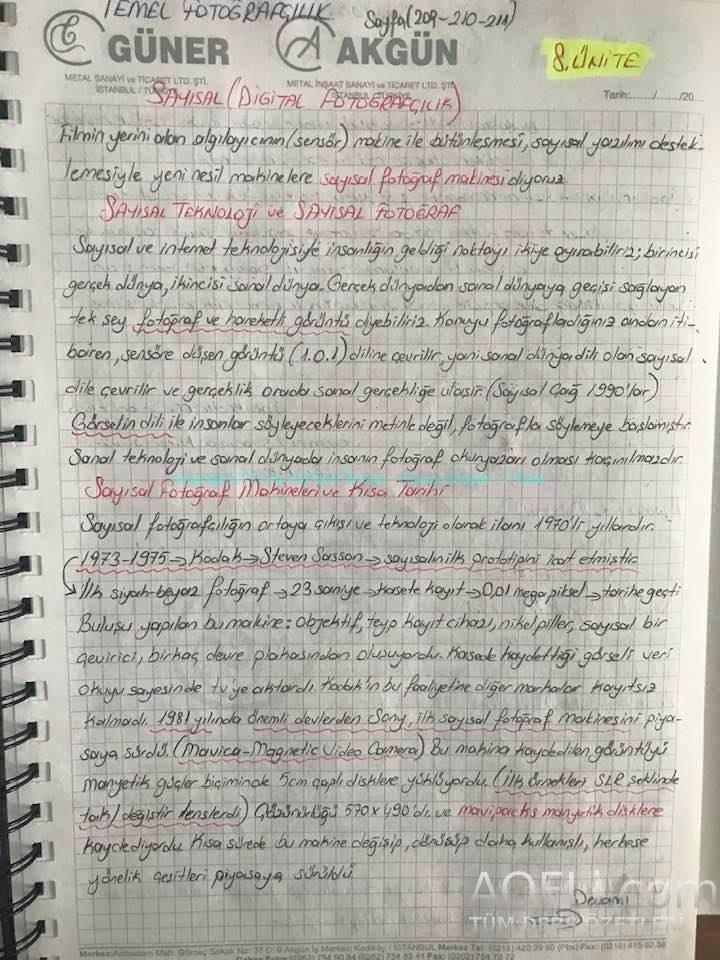 TEMEL FOTOĞRAFÇILIK Sayfa(209-210-211)
GÜNER AKGÜN 8.ÜNİTE
METAL SANAYİ ve TİCARET LTD. ŞTİ. METAL İNŞAAT SANAYİ ve TİCARET LTD. ŞTİ.
İSTANBUL / TÜRKİYE İSTANBUL / TÜRKİYE Tarih:....../....../20
SAYISAL (DİGİTAL FOTOĞRAFÇILIK)
Filmin yerini alan algılayıcının (sensör) makine ile bütünleşmesi, sayısal yazılımı destek-
lemesiyle yeni nesil makinelere sayısal fotoğraf makinesi diyoruz
SAYISAL TEKNOLOJİ ve SAYISAL FOTOĞRAF
Sayısal ve internet teknolojisiyle insanlığın geldiği noktayı ikiye ayırabiliriz; birincisi
gerçek dünya, ikincisi sanal dünya. Gerçek dünyadan sanal dünyaya geçişi sağlayan
tek şey fotoğraf ve hareketli görüntü diyebiliriz. Konuyu fotoğrafladığınız andan iti-
baren, sensöre düşen görüntü (1.0.1) diline çevrilir yani sanal dünya dili olan sayısal
dile çevrilir ve gerçeklik orada sanal gerçekliğe ulaşır. (Sayısal Çağ 1990'lar)
Görselin dili ile insanlar söyleyeceklerini metinle değil, fotoğrafla söylemeye başlamıştır.
Sanal teknoloji ve sanal dünyada insanın fotoğraf okuryazarı olması kaçınılmazdır.
Sayısal Fotoğraf Makineleri ve Kısa Tarihi
Sayısal fotoğrafçılığın ortaya çıkışı ve teknoloji olarak ilanı 1970'li yıllardır.
1973-1975→Kodak→Steven Sasson→sayısalın ilk prototipini icat etmiştir.
İlk siyah-beyaz fotoğraf→23 saniye→kasete kayıt→0,01 mega piksel→tarihe geçti
Buluşu yapılan bu makine: objektif, teyp kayıt cihazı, nikel piller, sayısal bir
çevirici, birkaç devre plakasından oluşuyordu. Kasede kaydettiği görseli veri
okuyu sayesinde tv'ye aktardı. Kodak'ın bu faaliyetine diğer markalar kayıtsız
kalmadı. 1981 yılında önemli devlerden Sony, ilk sayısal fotoğraf makinesini piya-
saya sürdü. (Mavica-Magnetic Video Camera) Bu makina kaydedilen görüntüyü
manyetik güçler biçiminde 5cm çaplı disklere yüklüyordu. (İlk örnekleri SLR şeklinde
tak/değiştir lenslerdi) Çözünürlüğü 570x490'dı. ve mavipacks manyetik disklere
kaydediyordu. Kısa sürede bu makine değişip, dönüşüp daha kullanışlı, herkese
yönelik çeşitleri piyasaya sürüldü.
Devamı
AOFLi.com
TÜM DERS ÖZETLERİ